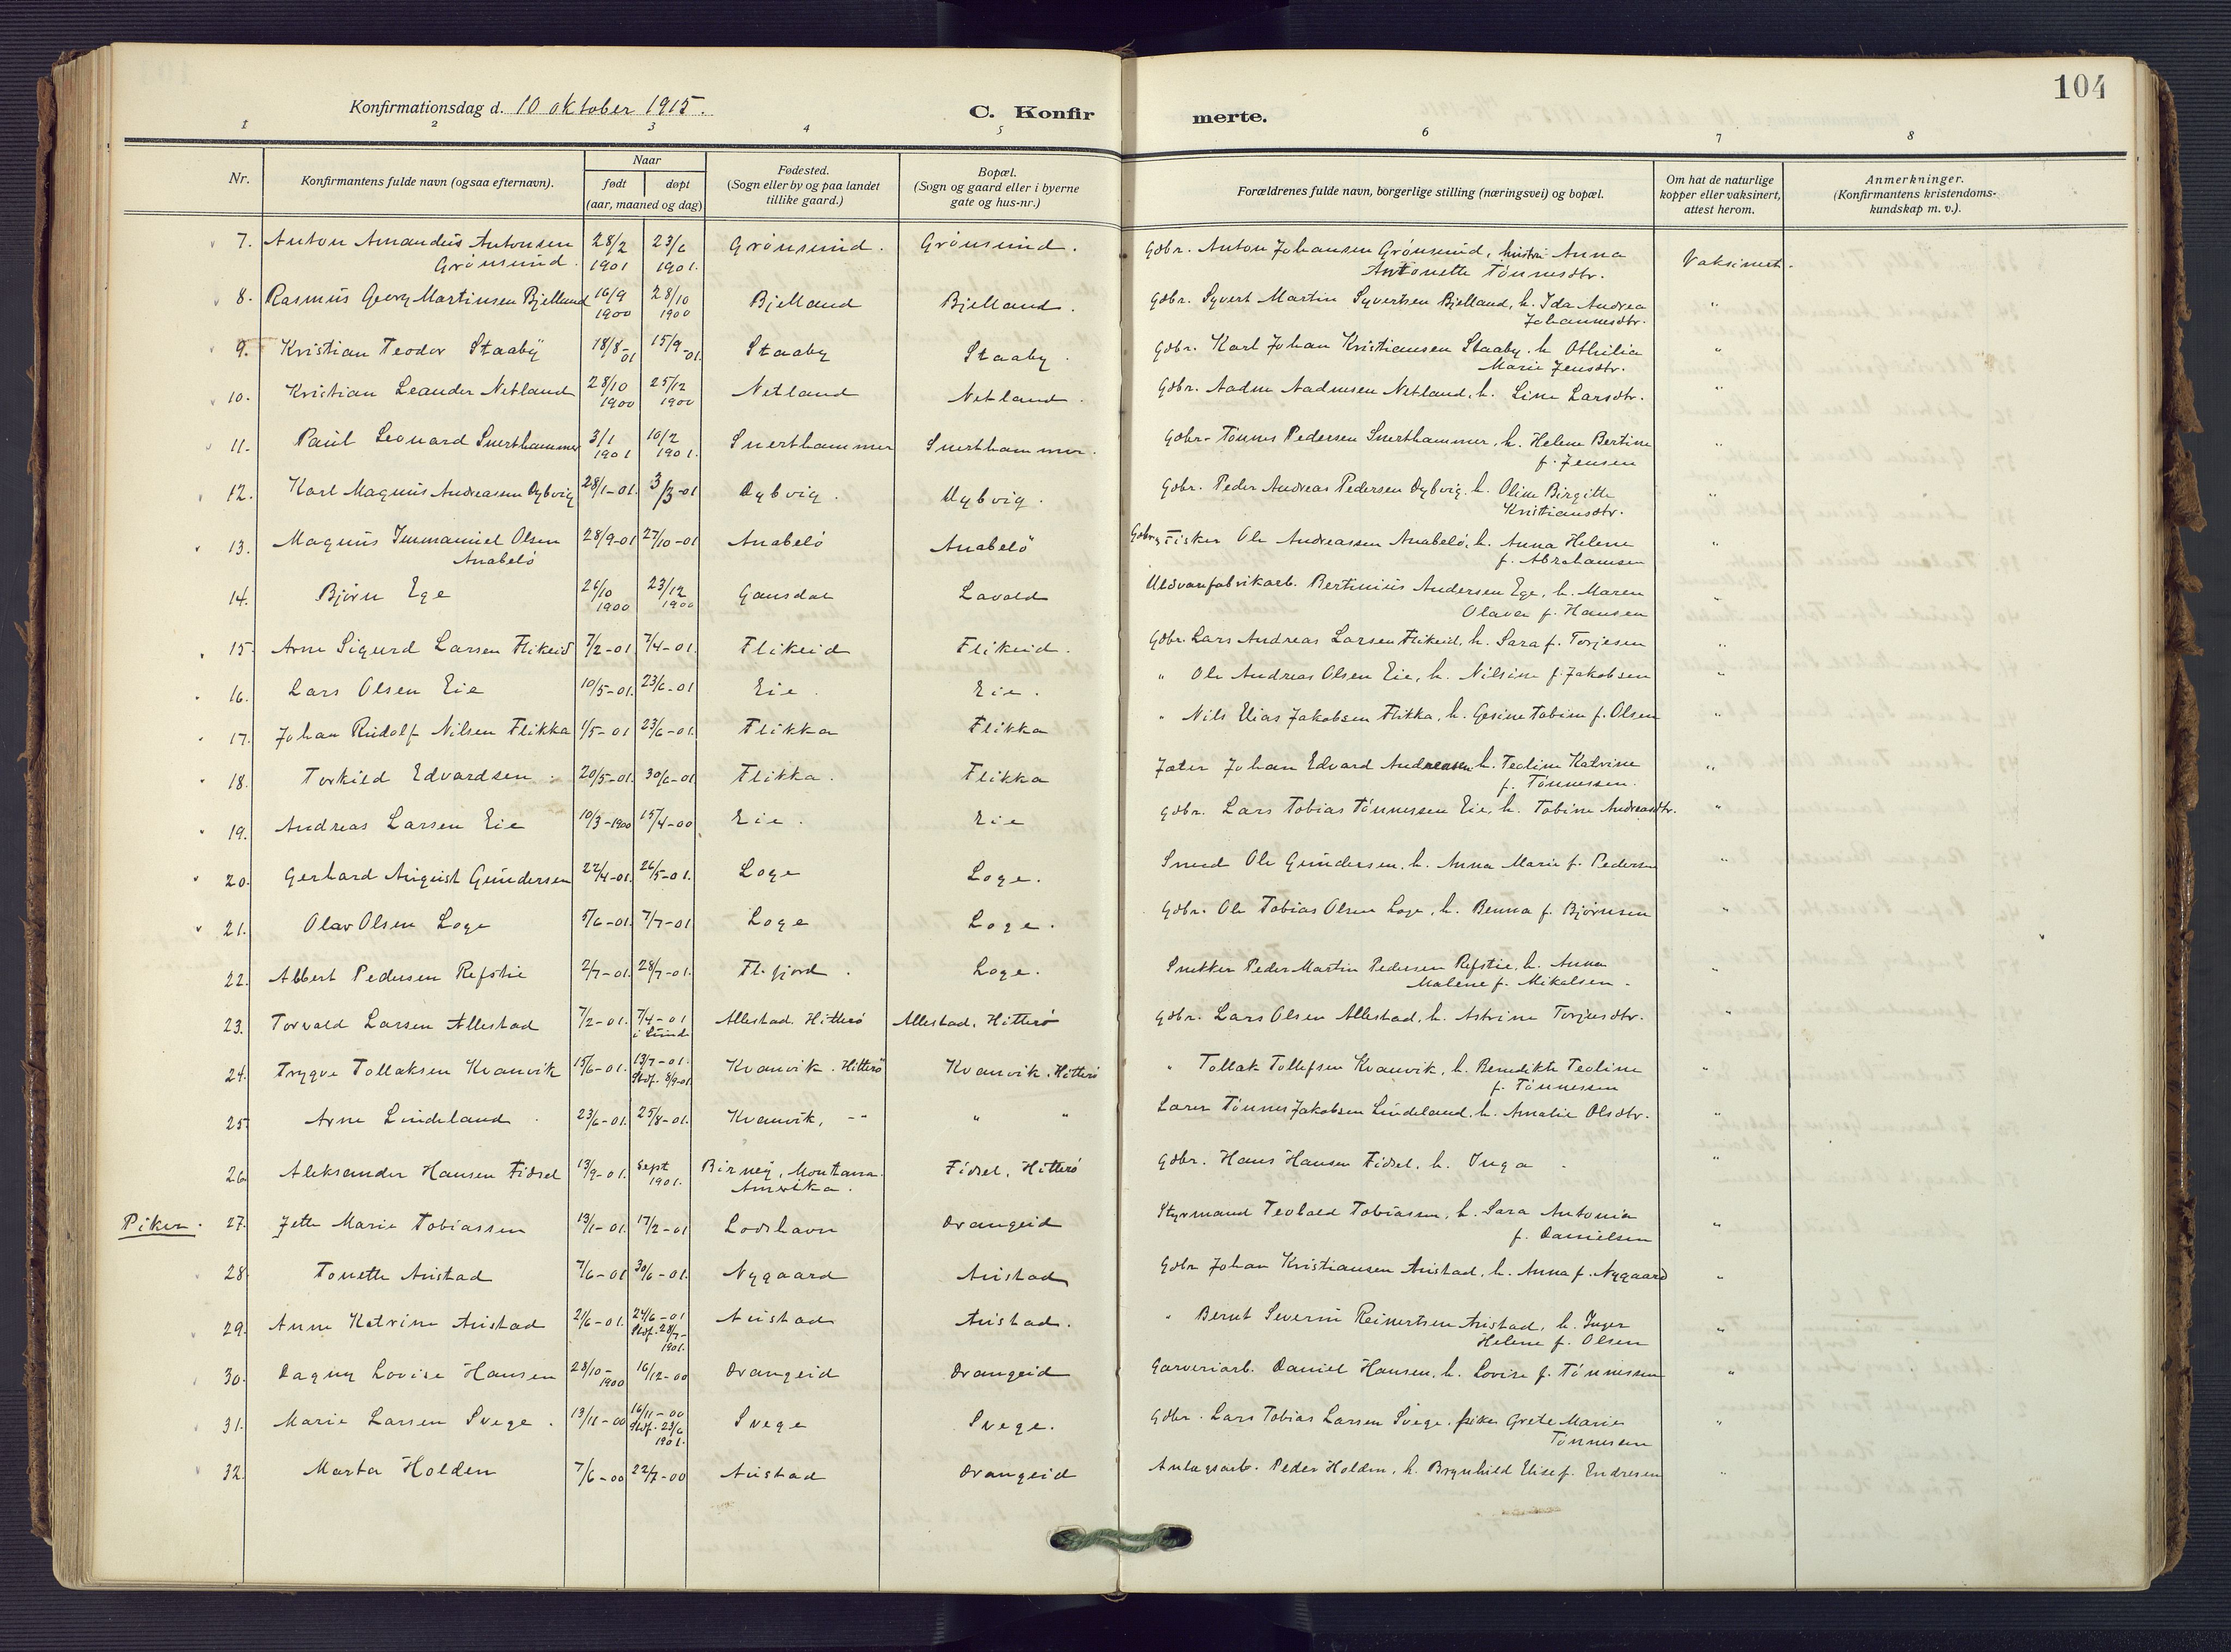 104
Konfirmationsdag d. 10 oktober 1915.
C. Konfirmerte.
1 2 3 4 5 6 7 8
Nr. | Konfirmantens fulde navn (ogsaa efternavn). | Naar født | døpt (aar, maaned og dag) | Fødested. (Sogn eller by og paa landet tillike gaard.) | Bopæl. (Sogn og gaard eller i byerne gate og hus-nr.) | Forældrenes fulde navn, borgerlige stilling (næringsvei) og bopæl. | Om hat de naturlige kopper eller vaksinert, attest herom. | Anmerkninger. (Konfirmantens kristendomskundskap m. v.).
7. Anton Amandeus Antonsen Grönsund. | 28/2 1901 | 23/6 1901. | Grönsund. | Grönsund. | Gdbr. Anton Johansen Grönsund, hustru Anna Antonette Tönnesdtr. | Vaksinert.
8. Rasmus Georg Martinsen Bjelland | 16/9 1900 | 28/10 1900 | Bjelland | Bjelland. | Gdbr. Syvert Martin Syvertsen Bjelland, h. Ida Andrea Johannesdtr. | "
9. Kristian Teodor Staaby | 18/8-01 | 15/9-01. | Staaby | Staaby. | Gdbr. Karl Johan Kristiansen Staaby. h. Othilia Marie Jensdtr. | "
10. Kristian Leander Netland | 28/10 1900 | 25/12 1900 | Netland | Netland. | Gdbr. Aadne Aadnesen Netland, h. Line Larsdtr. | "
11. Paul Leonard Snerthammer | 3/1 1901 | 10/2 1901. | Snerthammer | Snerthammer. | Gdbr. Tönnes Pedersen Snerthammer, h. Helene Bertine f. Jensen | "
12. Karl Magnus Andreasen Dybvig | 28/1-01. | 3/3-01 | Dybvig. | Dybvig. | Gdbr. Peder Andreas Pedersen Dybvig, h. Oline Birgitte Kristiansdtr. | "
13. Magnus Immanuel Olsen Anabelö | 28/9-01 | 27/10-01 | Anabelö | Anabelö | Gdbr, Fisker Ole Andreassen Anabelö, h. Anna Helene f. Abrahamsen | "
14. Björn Ege | 26/10 1900 | 23/12 1900 | Gausdal | Lavold | Uldvarefabrikarb. Bertinius Andersen Ege, h. Maren Olava f. Hansen | "
15. Arne Sigurd Larsen Flikeid | 7/2-01 | 7/4-01. | Flikeid | Flikeid. | Gdbr. Lars Andreas Larsen Flikeid, h. Sara f. Torjesen | "
16. Lars Olsen Eie | 10/5-01. | 23/6-01 | Eie. | Eie. | " Ole Andreas Olsen Eie, h. Nilsine f. Jakobsen | "
17. Johan Rudolf Nilsen Flikka | 1/5-01 | 23/6-01. | Flikka | Flikka | " Nils Elias Jakobsen Flikka, h. Gesine Tobine f. Olsen | "
18. Torkild Edvardsen. | 20/5-01. | 30/6-01 | Flikka. | Flikka | Johan Edvard Andreasen h. Teoline Katrine f. Tönnessen. | "
19. Andreas Larsen Eie | 10/3-1900 | 15/4-00 | Eie. | Eie | Gdbr. Lars Tobias Tönnessen Eie, h. Tobine Andreasdtr. | "
20. Gerhard August Gundersen | 22/4-01. | 26/5-01. | Loge | Loge. | Smed Ole Gundersen, h. Anna Marie f. Pedersen | "
21. Olav Olsen Loge | 5/6-01. | 7/7-01 | Loge | Loge. | Gdbr. Ole Tobias Olsen Loge, h. Benna f. Björnsen | "
22. Albert Pedersen Refstie | 2/7-01. | 28/7-01. | Fl.fjord. | Loge. | Snekker Peder Martin Pedersen Refstie, h. Anna Malene f. Mikalsen. | "
23. Torvald Larsen Allestad | 7/2-01. | 7/4-01 i Lund | Allestad. Hitterö | Allestad, Hitterö | Gdbr. Lars Olsen Allestad, h. Astrine Torjesdtr. | "
24. Trygve Tollaksen Kvanvik | 15/6-01. | 13/7-01. Stdf. 8/9-01 | Kvanvik. Hitterö | Kvanvik. Hitterö | " Tollak Tollefsen Kvanvik, h. Benedikte Teoline f. Tönnessen | "
25. Arne Lindeland. | 23/6-01. | 25/8-01. | Kvanvik, -- | " " | Lærer Tönnes Jakobsen Lindeland, h. Amalie Olsdtr. | "
26. Aleksander Hansen Fidsel | 13/9-01. | Sept 1901. | Birney, Montana. Amerika. | Fidsel, Hitterö | Gdbr. Hans Hansen Fidsel, h. Inga. | "
Piker. 27. Jette Marie Tobiassen | 19/1-01. | 17/2-01 | Lodshavn | Drangeid | Styrmand Teobald Tobiassen, h. Sara Antonia f. Danielsen | "
28. Tonette Austad | 7/6-01 | 30/6-01. | Nygaard | Austad | Gdbr Johan Kristiansen Austad, h. Anna f. Nygaard | "
29. Anne Katrine Austad | 21/6-01. | 24/6-01 Stdf. 28/7-1901. | Austad | Austad. | " Bernt Severin Reinertsen Austad, h. Inger Helene f. Olsen | "
30. Dagny Lovise Hansen | 28/10-1900 | 16/12-00 | Drangeid | Drangeid | Garveriarb. Daniel Hansen, h. Lovise f. Tönnessen | "
31. Marie Larsen Svege. | 13/11-00 | 16/11-00 Stdf. 23/6 1901. | Svege | Svege. | Gdbr. Lars Tobias Larsen Svege, pike Grete Marie Tönnesen | "
32. Marta Holden | 7/6-00 | 22/7-00 | Austad | Drangeid | Anlægsarb. Peder Holden, h. Brynhild Elise f. Endresen | "